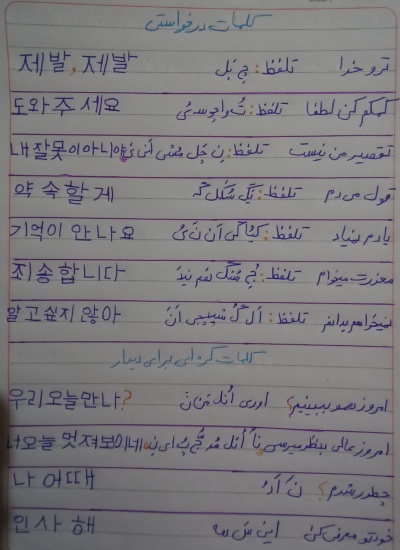 کلمات درخواستی
제발, 제발 تلفظ: چ بَل ترو خدا
도와 주 세요 تلفظ: تُ واجوسه ئی کمکم کن لطفا
내 잘못이 아니야 تلفظ: نِ چَل مُتی اَنی تقصیر من نیست
약 속할 게 تلفظ: یَگ سُکَل گه قول می دم
기억이 안 나요 تلفظ: اَن نَ ئی یادم نمیاد
죄송합니다 تلفظ: معذرت میخوام
알고 싶지 않아 تلفظ: اَل گُ اَنَ نمیخواهم بدانم
کلمات کره ای برای دیدار
우리 오늘 만나? اوری اُنل مَن نَ امروز همو ببینیم؟
너 오늘 멋져보이네 اُنل امروز عالی بنظر میرسی
나 어때 نَ چطور شدم؟
인사 해 این سَ هه خودتو معرفی کن